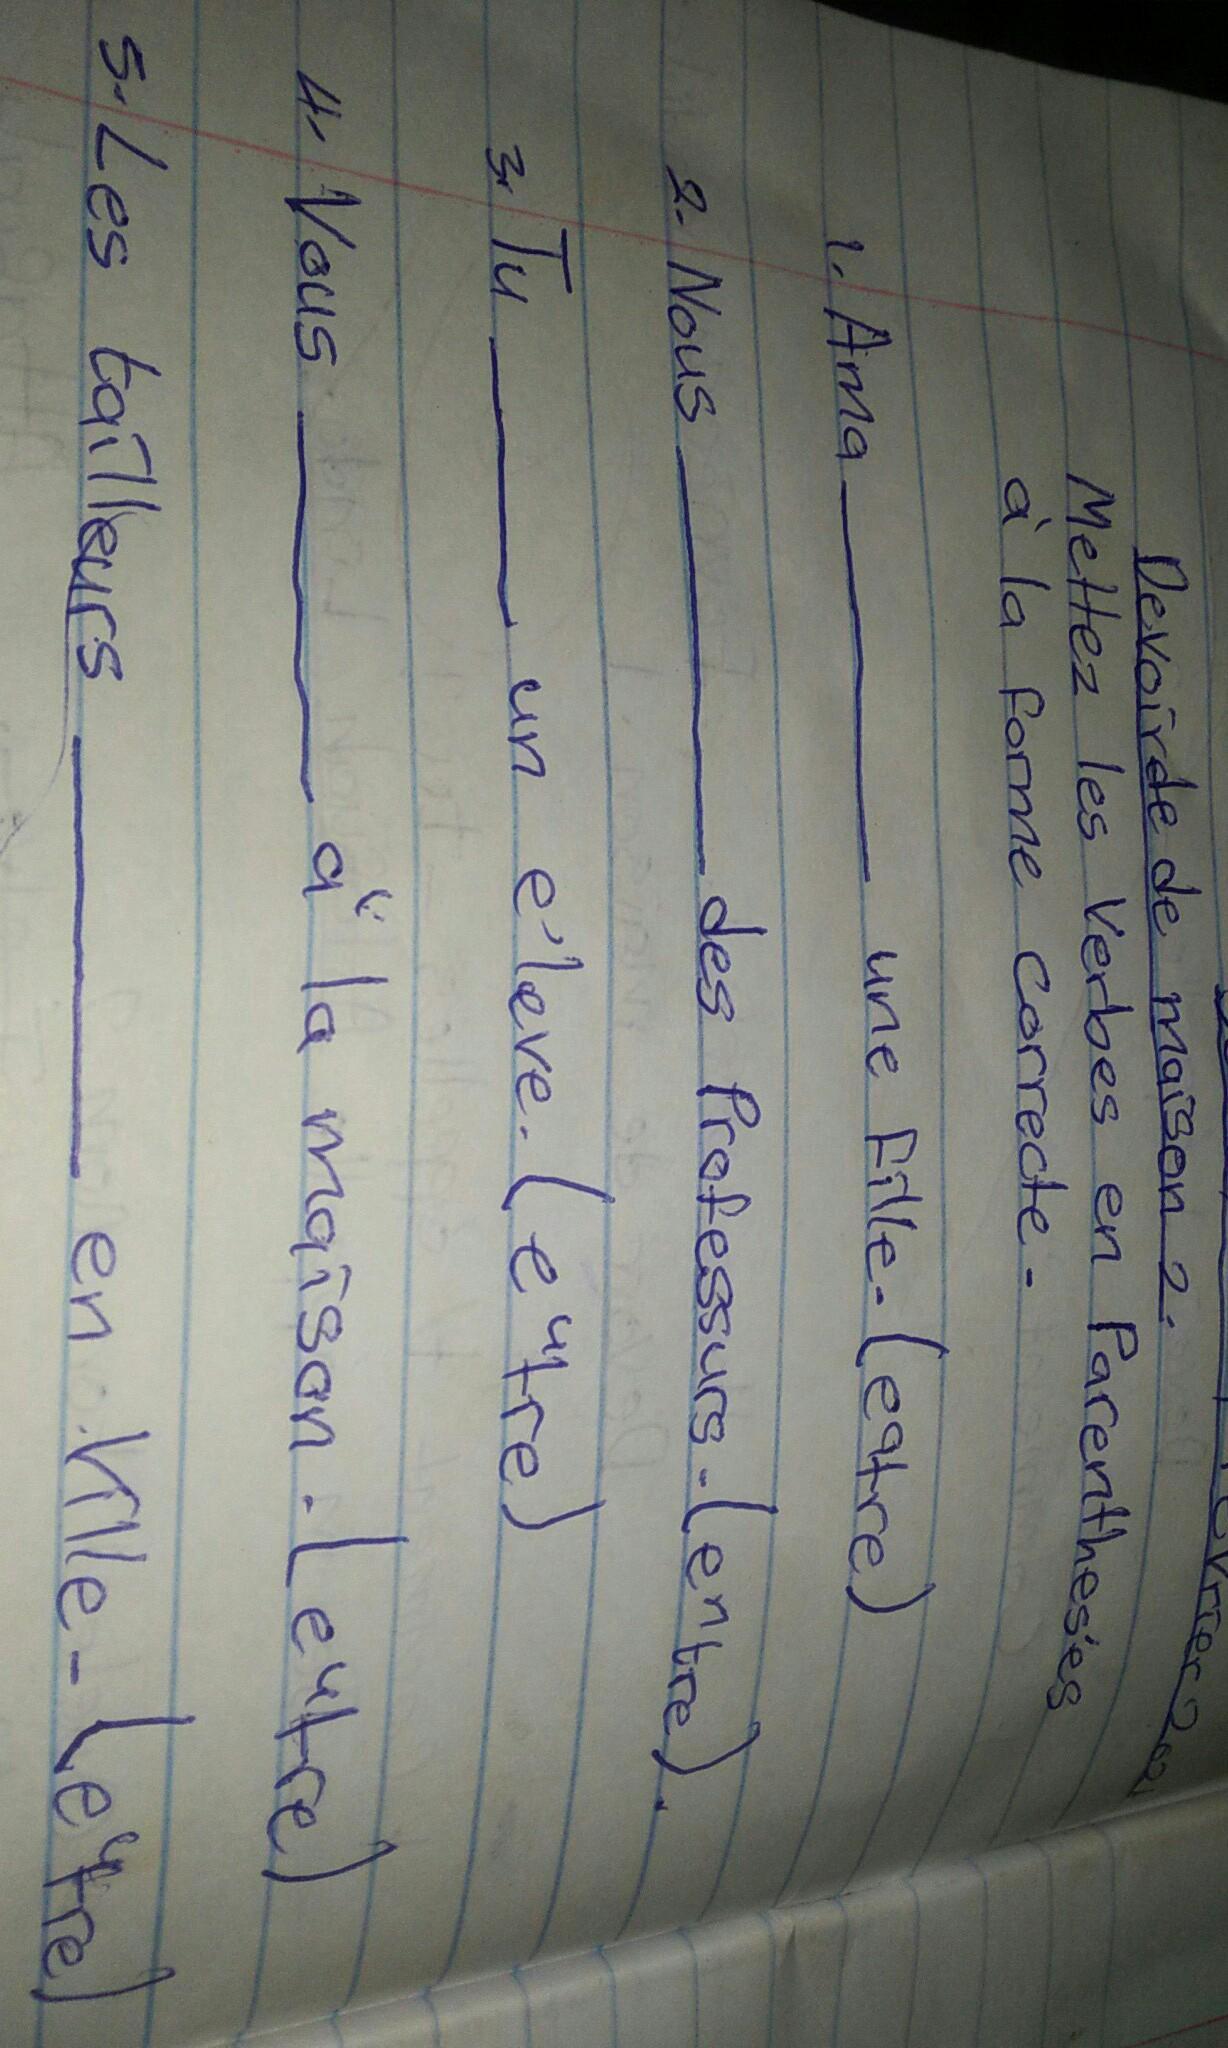 Devoirde de maison 2.
Mettez les Verbes en Parenthesés
á la forme Correcte.
1. Ama ______ une fille. (eqtre)
2. Nous ______ des Professurs. (entre).
3. Tu ______ un e'leve. (e"tre)
4. Vous ______ a" la maison. (e"tre)
5. Les tailleurs ______ en Ville. (e"tre)